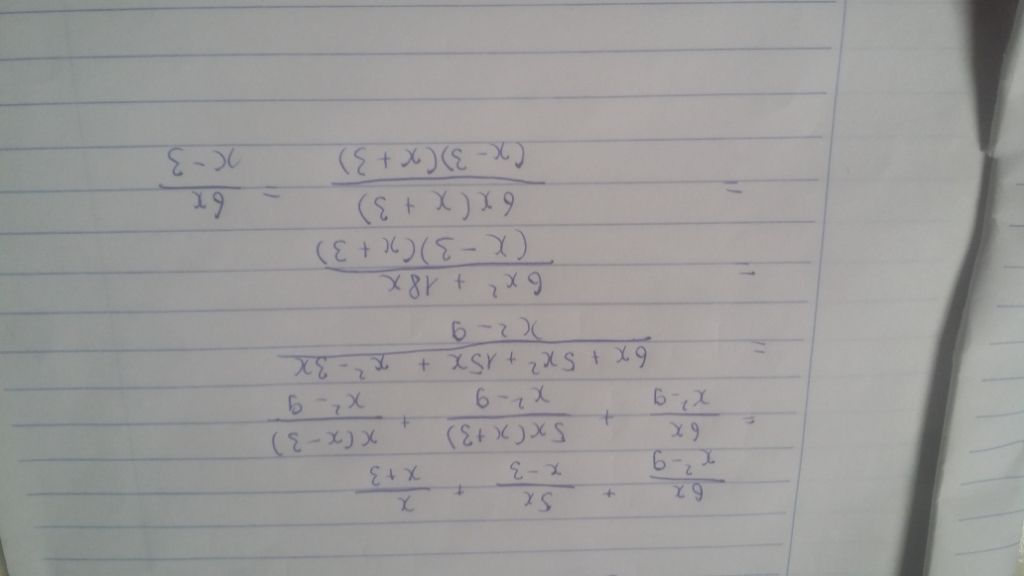 6x/(x²-9) + 5x/(x-3) + x/(x+3)
= 6x/(x²-9) + 5x(x+3)/(x²-9) + x(x-3)/(x²-9)
= (6x + 5x² + 15x + x² - 3x)/(x²-9)
= (6x² + 18x)/((x-3)(x+3))
= 6x(x+3)/((x-3)(x+3)) = 6x/(x-3)